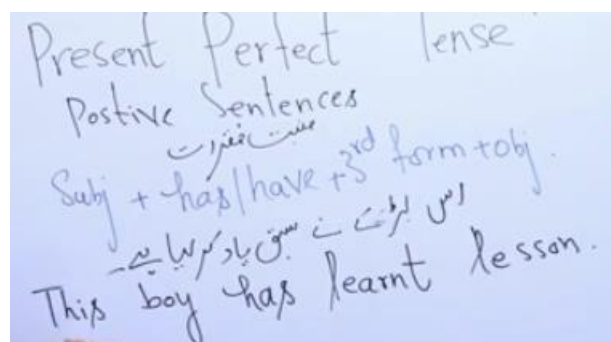 Present Perfect Tense
Postive Sentences
مثبت فقرات
Subj + has/have + 3rd form + obj.
اس لڑکے نے سبق یاد کر لیا ہے۔
This boy has learnt lesson.